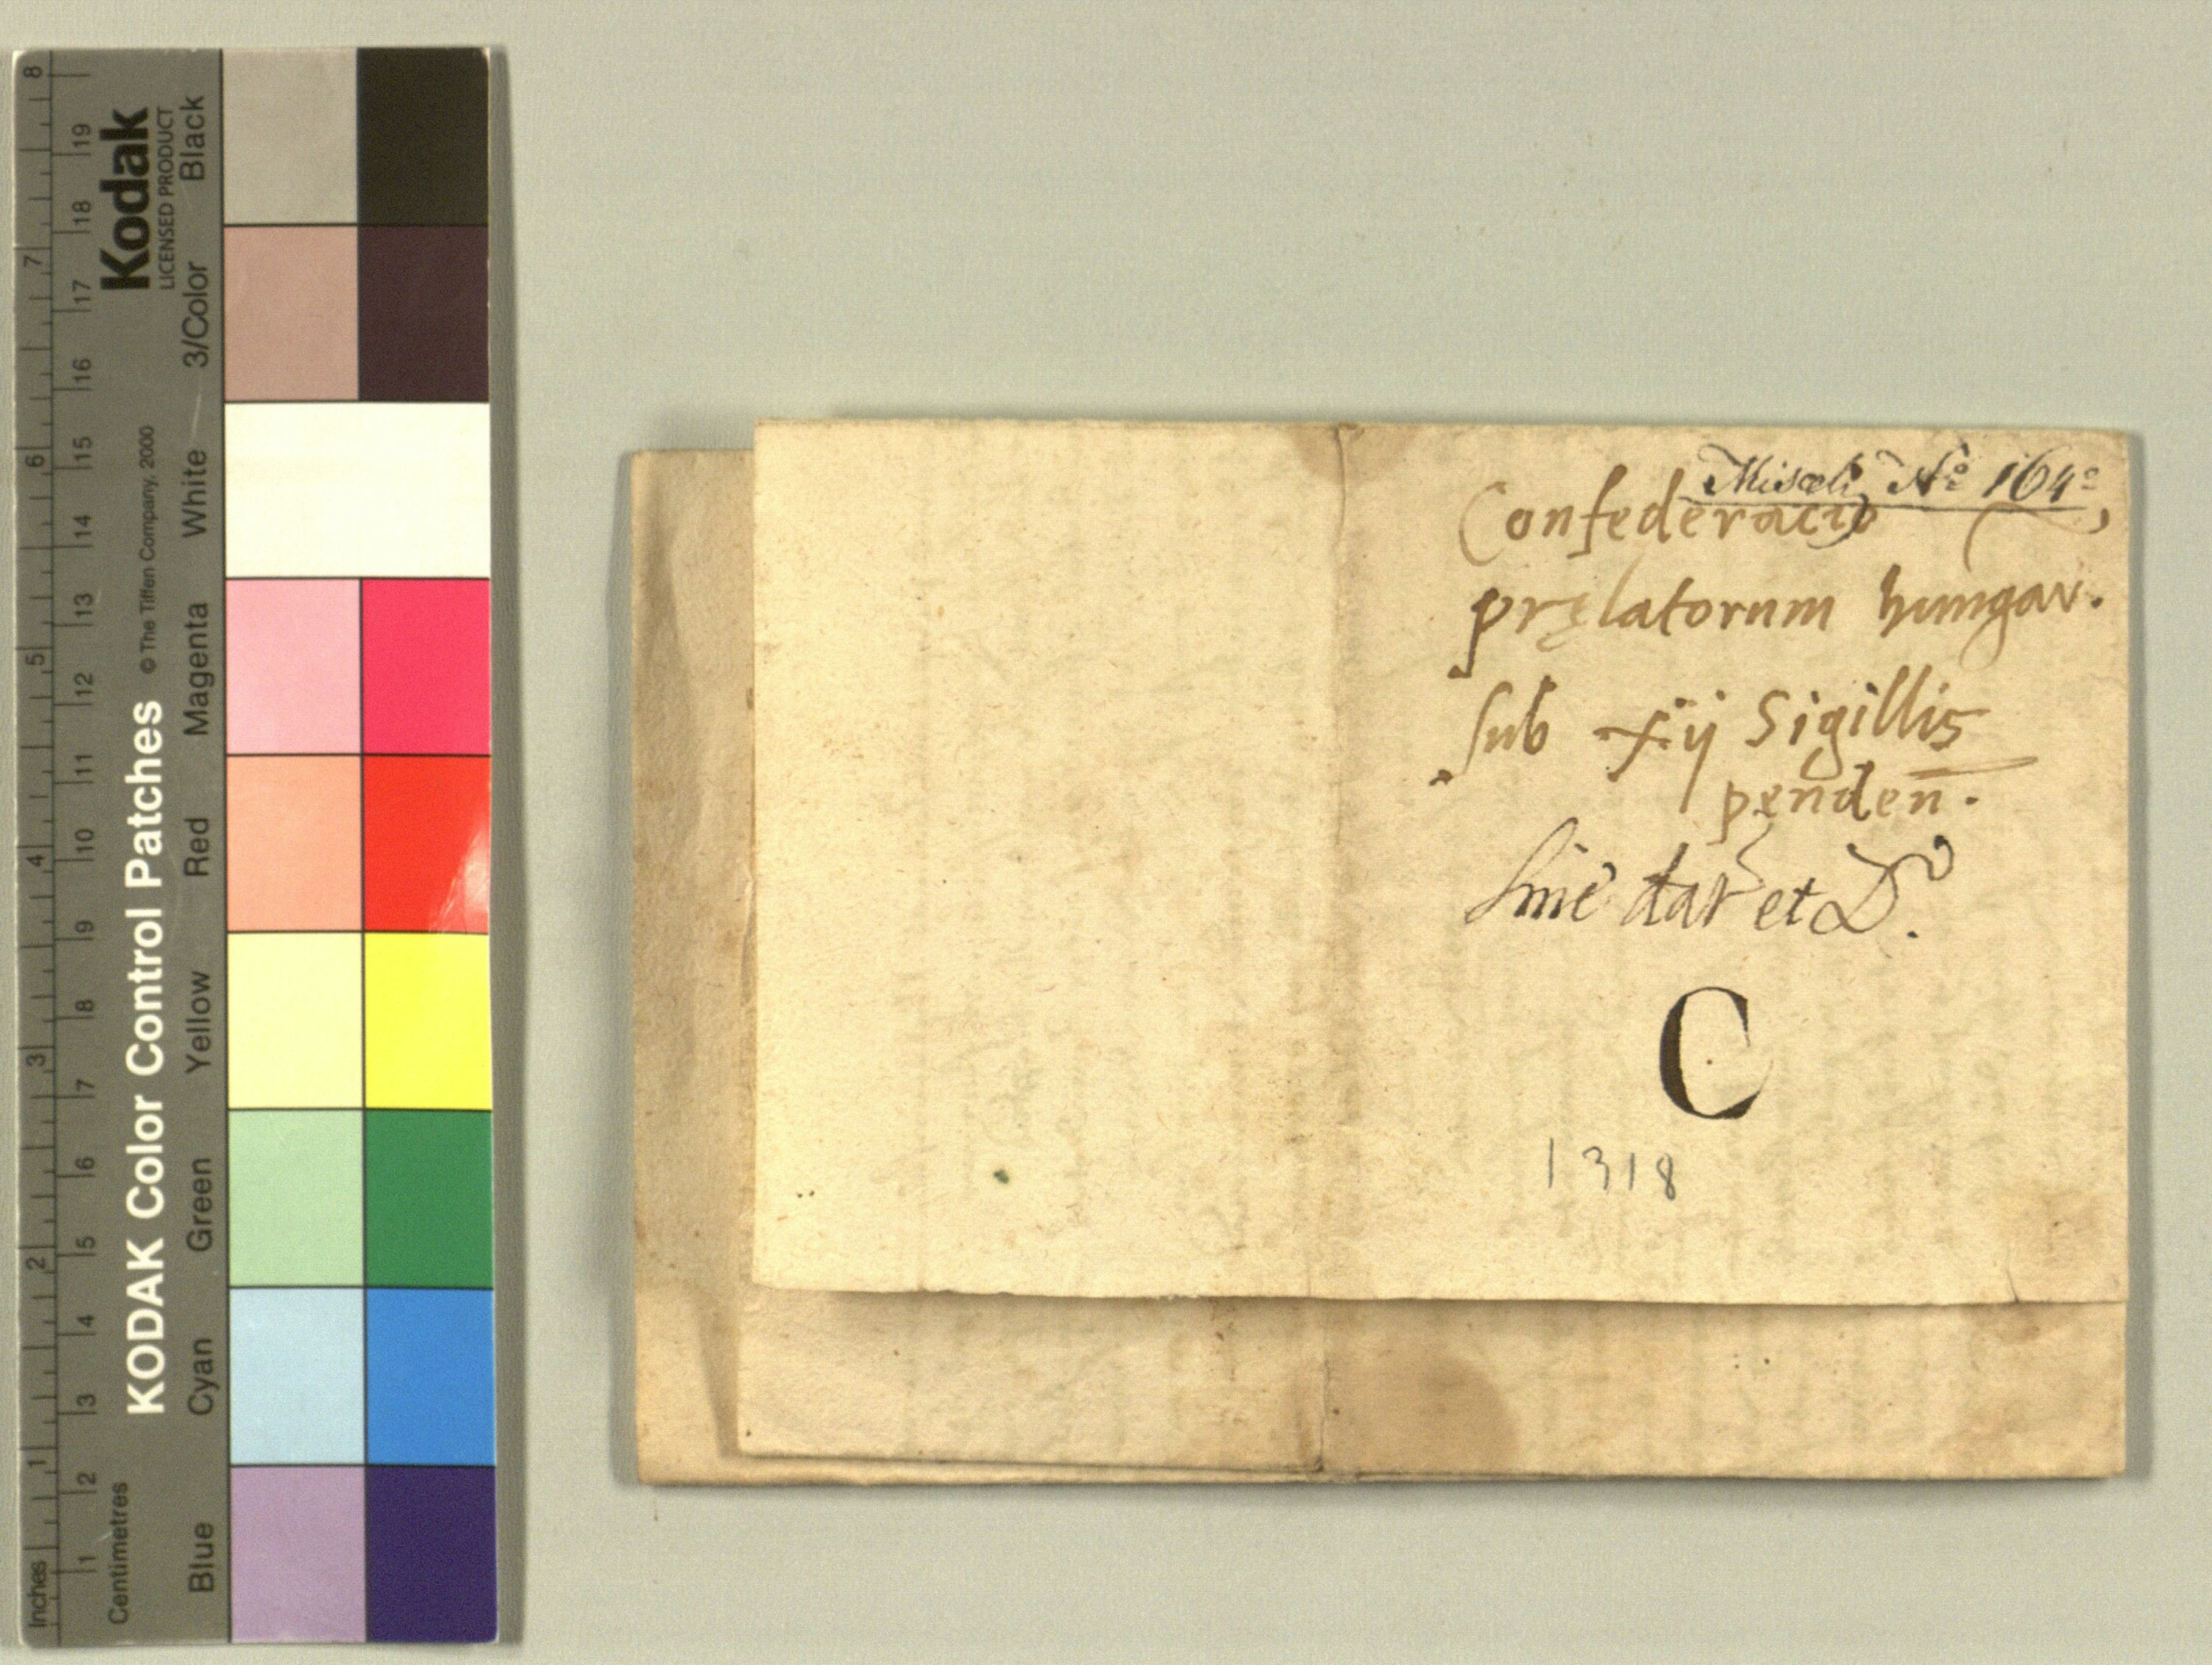 Miscel. No 164o
Confederacio
pręlatorum hungar.
sub xij Sigillis
penden̄.
sine dat et D.
C
1318
KODAK Color Control Patches © The Tiffen Company, 2000
Kodak
LICENSED PRODUCT
Blue Cyan Green Yellow Red Magenta White 3/Color Black
Inches 1 2 3 4 5 6 7 8
Centimetres 1 2 3 4 5 6 7 8 9 10 11 12 13 14 15 16 17 18 19